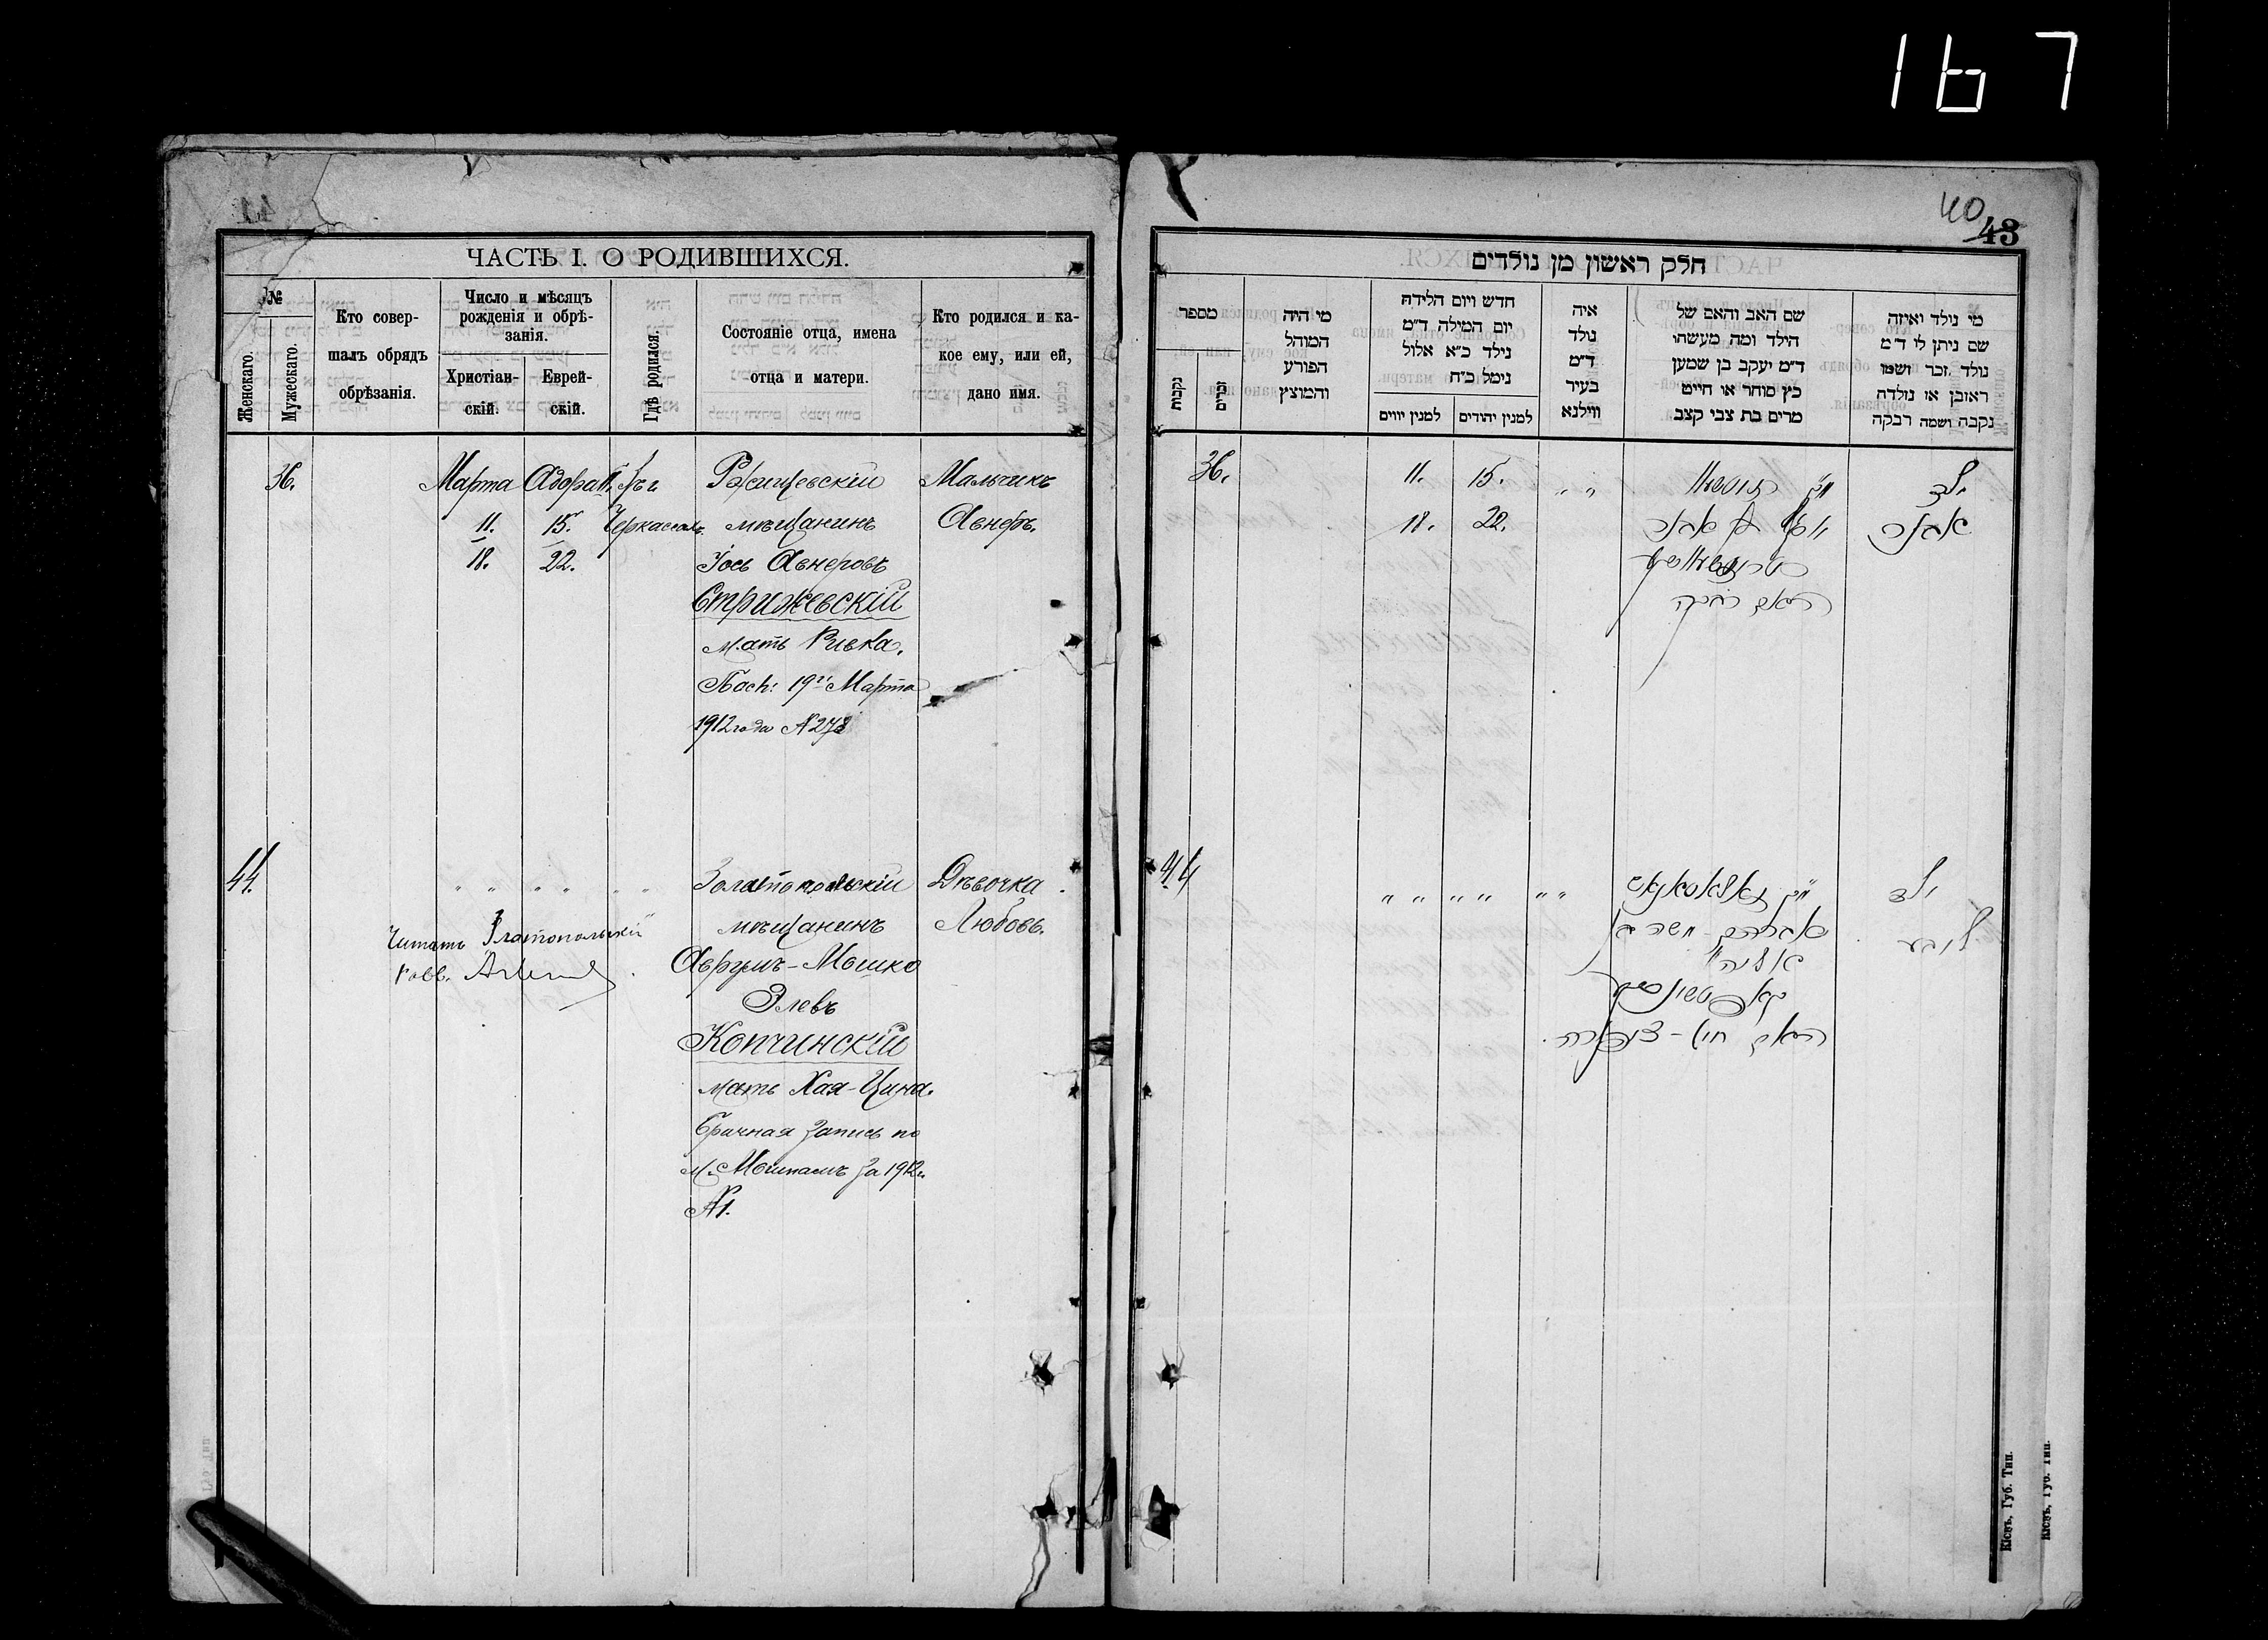 167
40
43
ЧАСТЬ I. О РОДИВШИХСЯ.
№
Женскаго.
Мужескаго.
Кто совер-
шалъ обрядъ
обрѣзанія.
Число и мѣсяцъ
рожденія и обрѣ-
занія.
Христіан-
скій.
Еврей-
скій.
Гдѣ родился.
Состояніе отца, имена
отца и матери.
Кто родился и ка-
кое ему, или ей,
дано имя.
36.
Марта
11.
18.
Адора II.
15.
22.
Черкассахъ
Ржищевскій
мѣщанинъ
Іось Авнеровъ
Стрижевскій
мать Ривка.
19го Марта
1912 года № 278
Мальчикъ
Авнеръ.
44.
" " " " " "
Читать Златопольскій
Золотопольскій
мѣщанинъ
Аврумъ-Мошко
Элевъ
Копчинскій
мать Хая-Ципа.
Брачная запись по
м. за 1912г.
№ 1.
Дѣвочка
Любовь.
חלק ראשון מן נולדים
מספר
נקבות
זכרים
מי היה
המוהל
הפורע
והמוצץ
חדש ויום הלידה
יום המילה ד״מ
נילד כ״א אלול
נימל כ״ח
למנין יווים
למנין יהודים
איה
נולד
ד״מ
בעיר
ווילנא
שם האב והאם של
הילד ומה מעשהו
ד״מ יעקב בן שמען
כץ סוחר או חייט
מרים בת צבי קצב
מי נולד ואיזה
שם ניתן לו ד״מ
נולד זכר ושמו
ראובן או נולדה
נקבה ושמה רבקה
36.
11.
18.
15.
22.
" "
יוסף בן אבנר
האם רבקה
ילד
אבנר
44
" " " " " "
אברהם - משה בן
האם חיה - ציפורה
ילד
ליובע
Кіевъ, Губ. Тип.
Кіевъ, Губ. Тип.